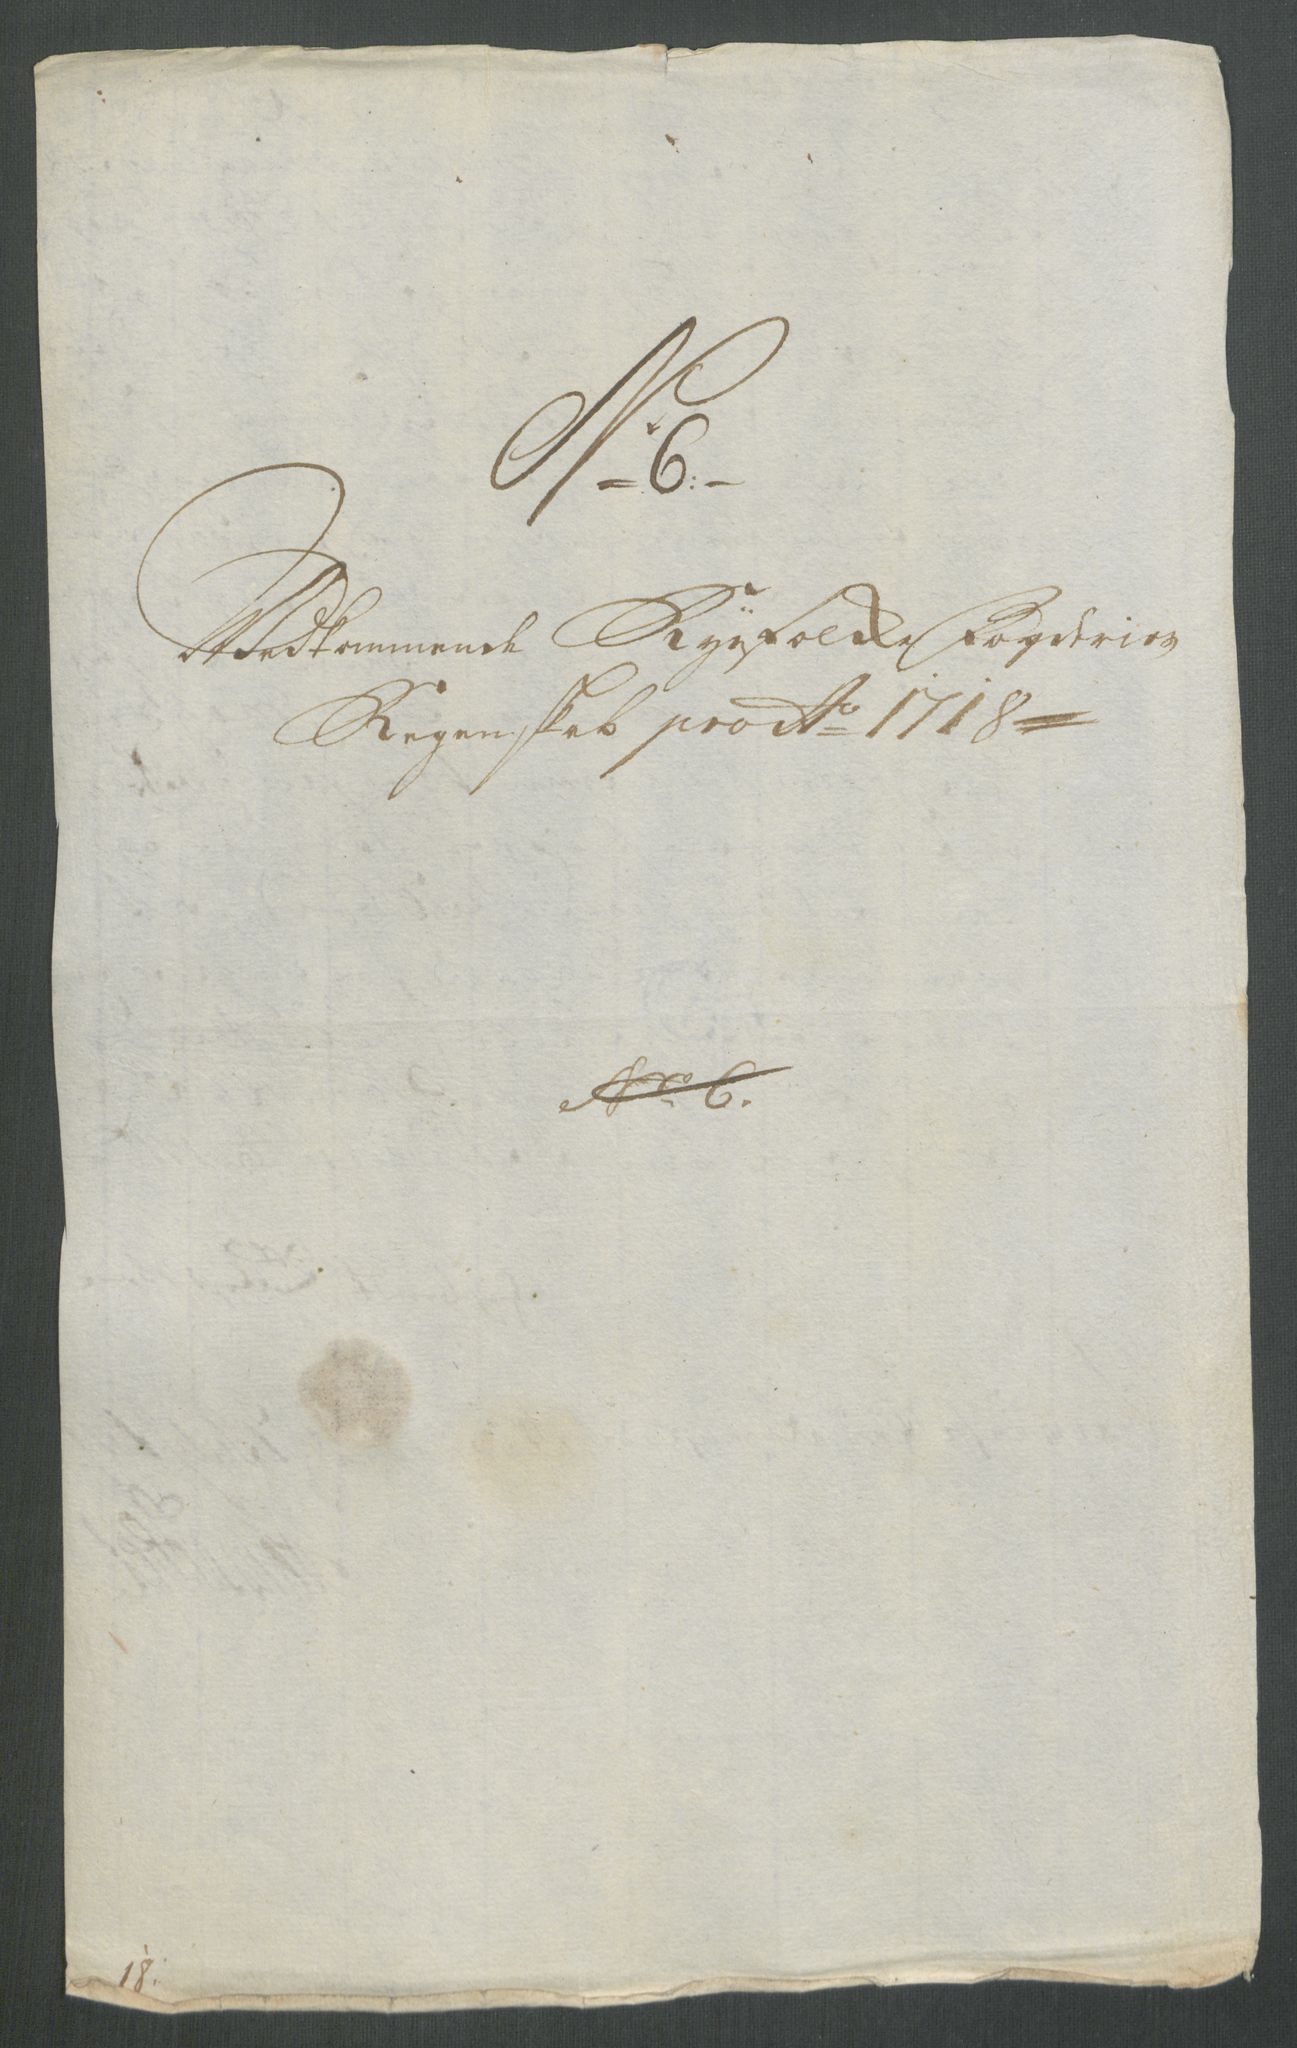 No 6.
Vedkommende Ryefolche Fogderies
Regenskab pro Ao 1718
No 6.
18.